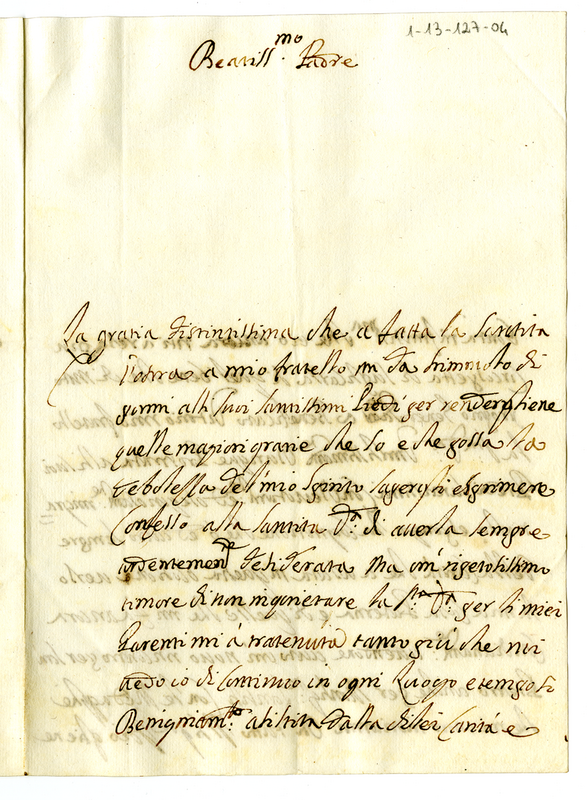 1-13-127-04
Beatiss.mo Padre
La gratia distintissima che a fatta la Santita
Vostra a mio fratello mi da stimmolo di
pormi alli suoi santissimi Piedi per renderGliene
quelle magiori gratie che so e che possa la
debolessa del mio Spirito saperGli esprimere
Confesso alla Santita V.a di averla sempre
ardentemente desiderata Ma un rispetosissimo
timore di non inquietare la S.ta V.a per li miei
Parenti mi à tratenuta tanto più che mi
vedo io di Continuo in ogni Luogo e tempo si
Benigniam.te asistita dalla di lei Carità e